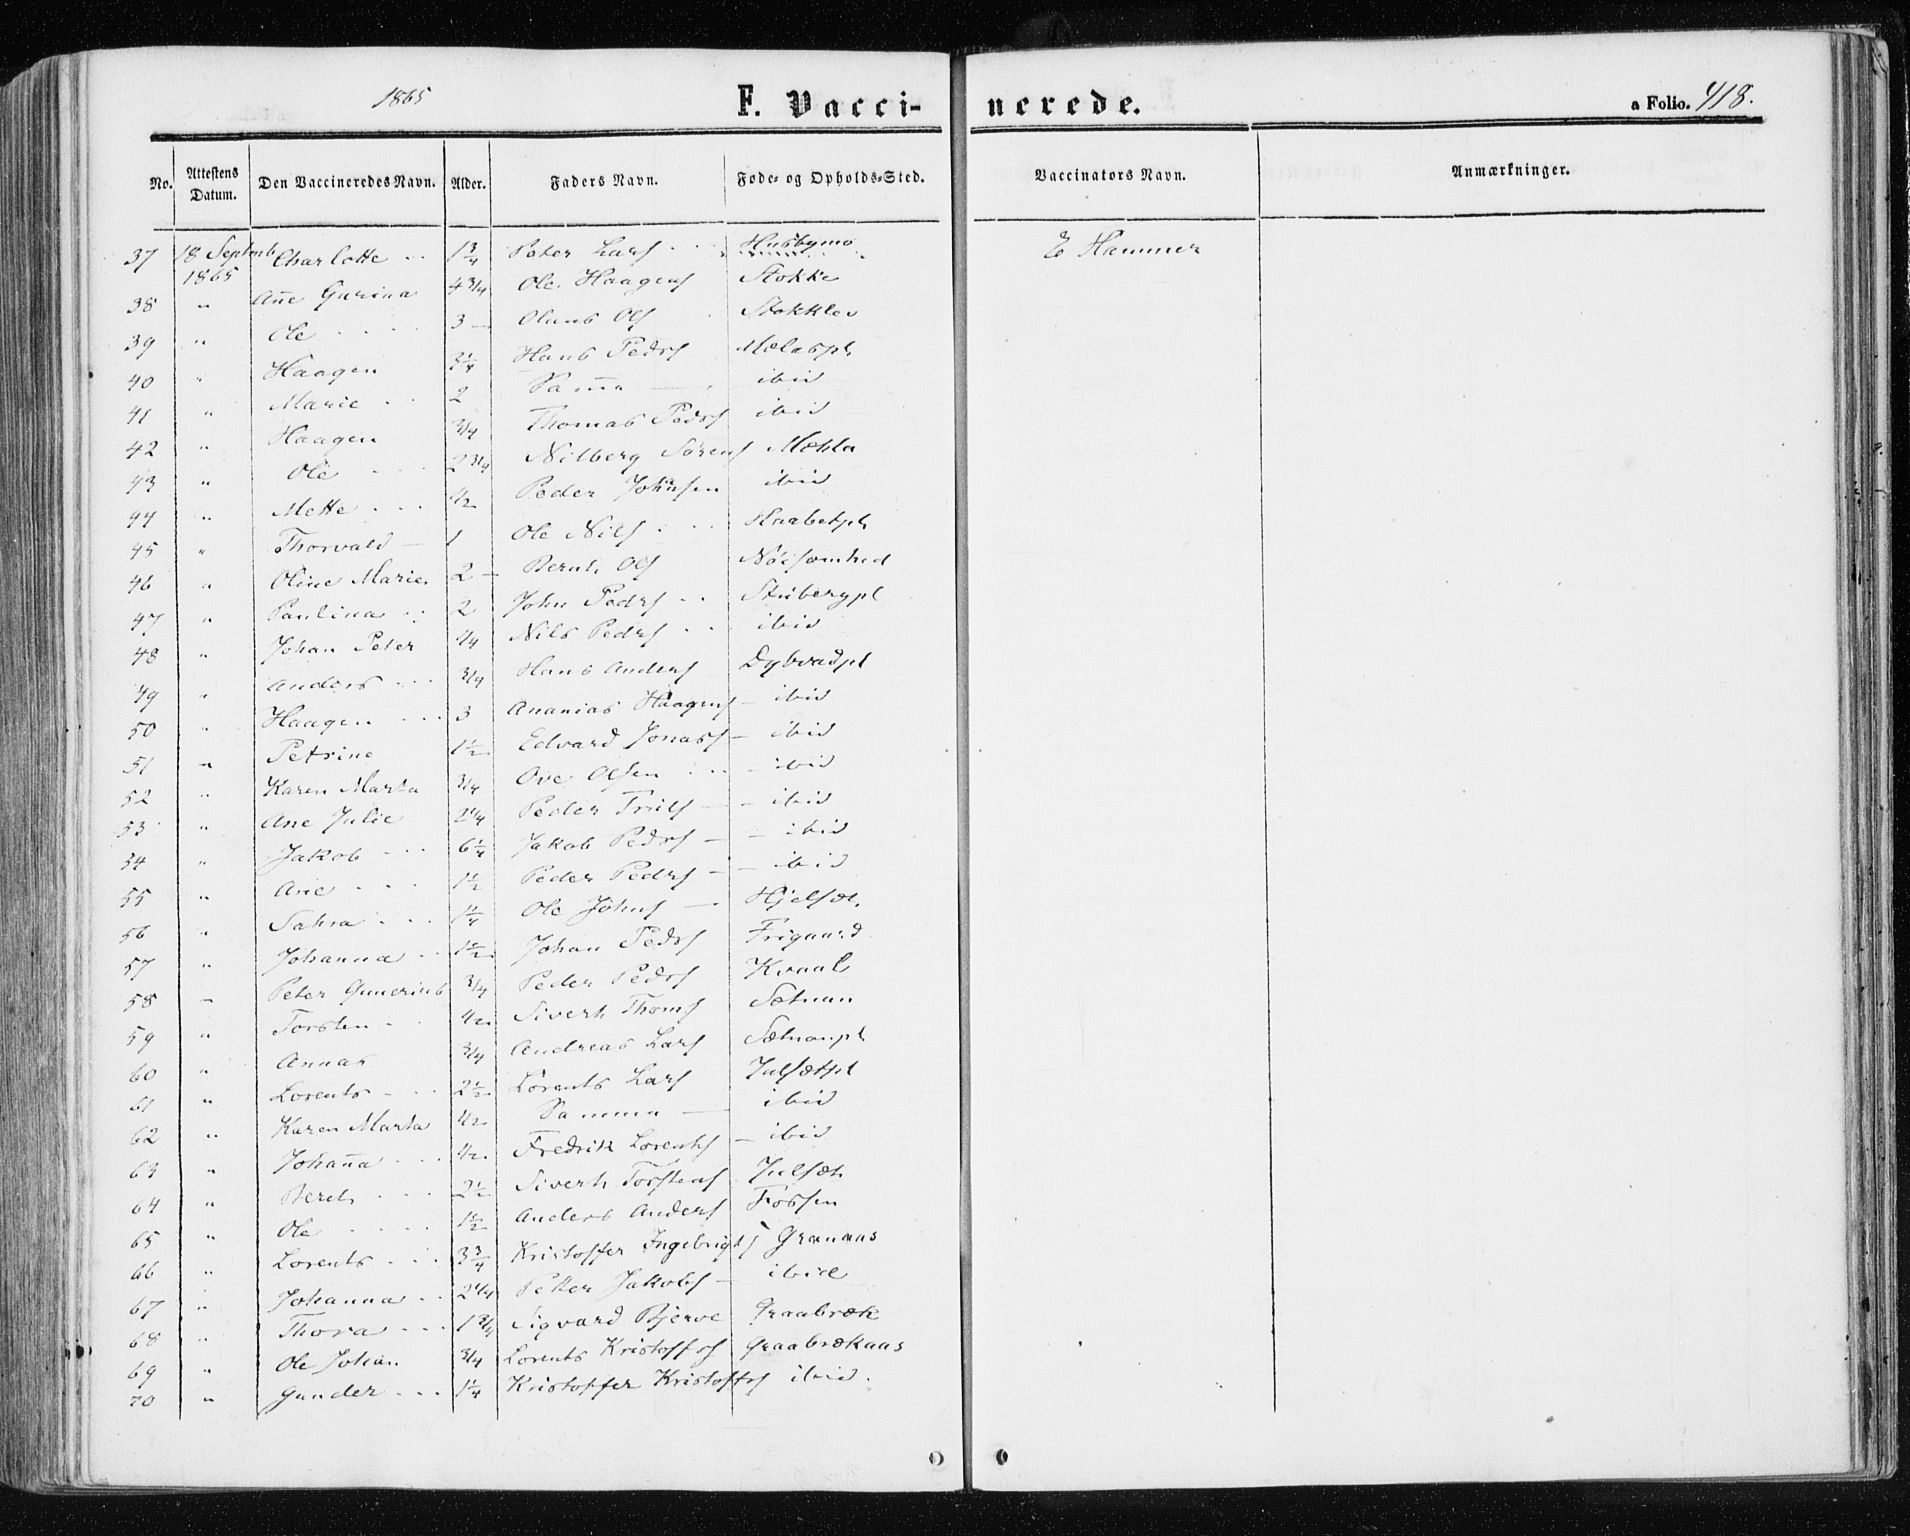 1865
F. Vaccinerede.
a Folio. 418.
No. Attestens Datum. Den Vaccineredes Navn. Alder. Faders Navn. Føde- og Opholds-Sted. Vaccinators Navn. Anmærkninger.
37 18 Septmb 1865 Charlotte 1 3/4 Peter Lars Husbymo E Hammer
38 " Ane Gurina 4 3/4 Ole Haagens Stokke
39 " Ole 3 Olaus Ols
40 " Haagen Hans Peders
41 " Marie 2 Samme ibid
42 " Haagen 3/4 Thomas Peders ibid
43 " Ole 2 3/4 Nilberg Sørens Mæhla
44 " Mette 1/2 Peder Johnsen ibid
45 " Thorvald 1 Ole Nils
46 " Oline Marie 2 Bernt Ols Nøisomhed
47 " Paulina 2 John Peders Stubergpl
48 " Johan Peter 1/4 Nils Peders ibid
49 " Anders 3/4 Hans Anders Dybvadpl
50 " Haagen 3 Ananias Haagens ibid
51 " Petrine 1 1/2 Edvard Jonass ibid
52 " Karen Marta 3/4 Ove Olsen ibid
53 " Ane Julie 2 1/4 Peder Truls ibid
54 " Jakob 6 1/4 Jakob Peders ibid
55 " Ane 1 1/2 Peder Peders ibid
56 " Sahra 1 1/4 Ole Johns Hjelsæt
57 " Johanna 1 1/2 Johan Peders Frigaard
58 " Peter Gunerius 3/4 Peder Peders Kvaal
59 " Torsten 1/2 Sivert Thoms Sætnan
60 " Annas 3/4 Andreas Lars Sætnanpl
61 " Lorents 2 1/2 Lorents Lars Julsætpl
62 " Karen Marta 1/2 Samme ibid
63 " Johanna 1/2 Fredrik Lorents ibid
64 " Beret 2 1/2 Sivert Torstens Julsæt
65 " Ole 1 1/2 Anders Anders Fossen
66 " Lorents 3 3/4 Kristoffer Ingebrigts Granaas
67 " Johanna 2 1/4 Petter Jakobs ibid
68 " Thora 1 3/4 Sigvard Bjerve Graabræk
69 " Ole Johan 3/4 Lorents Kristoffs Graabrækaas
70 " Gunder 1 1/4 Kristoffer Kristoffs ibid.